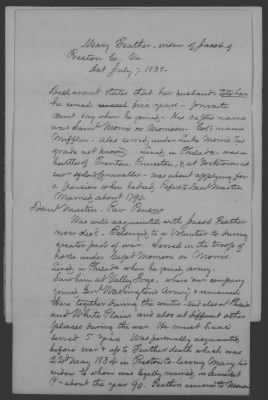 Mary Feather - widow of Jacob of
Preston Co. Va
Act July 7. 1838.
Declarant states that her husband told her
he served several five years - private
cant say when he joined - His Capts name
was Saml Morris or Monison - Col's name
Mifflin - Also served under Luke Morris his
grade not known - Lived in Philada - was in
battles of Trenton, Princeton, & at Yorktown at
surr of Lord Cornwallis - was about applying for
a pension when he died, Refers to Danl Martin
Married about 1790
Danl Martin - Rev Penr
Was well acquainted with Jacob Feather
now decd - Belonged to a Volunteer Co during
greater part of war - Served in the troop of
horse under Capt Monson or Morris
Lived in Philada when he joined army.
Saw him at Valley Forge, where our company
joined Genl Washingtons Army, & remained
there together during the winter - and also at
and White Plains and also at different other
places during the war - He must have
served 5 years - Was personally acquainted
before war & up to Feathers death which was
22d May 1834 in Preston Co - leaving Mary his
widow to whom was legally married, in
Pa about the year 90. Feather removed to